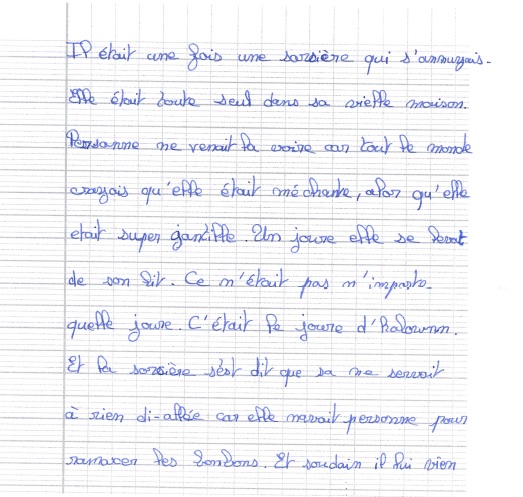 Il était une fois une sorsière qui s'annuyais.
Elle était toute seul dans sa vielle maison.
Personne ne venait la voire car tout le monde
crayais qu'elle était méchante, alor qu'elle
etait super gantille. Un joure elle se levat
de son lit. Ce n'était pas n'imparte
quelle joure. C'était le joure d'halownn.
Et la sorsière sést dit que sa ne servait
à rien di-allée car elle navait personne pour
ramacer les bonbons. Et soudain il lui vien